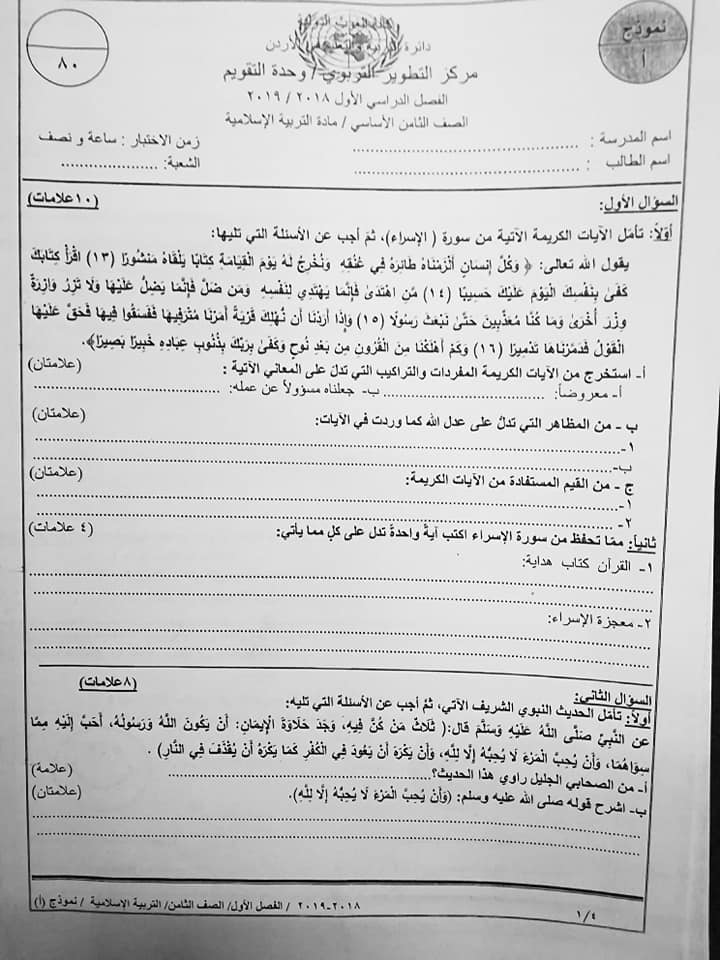 نموذج
أ
٨٠
دائرة التربية والتعليم الأردن
مركز التطوير التربوي / وحدة التقويم
الفصل الدراسي الأول ٢٠١٨ / ٢٠١٩
الصف الثامن الأساسي / مادة التربية الإسلامية
اسم المدرسة : ........................................
زمن الاختبار : ساعة و نصف
اسم الطالب : ........................................
الشعبة: ....................
السؤال الأول: (١٠ علامات)
أولاً: تأمّل الآيات الكريمة الآتية من سورة ( الإسراء)، ثمّ أجب عن الأسئلة التي تليها:
يقول الله تعالى: ﴿ وَكُلَّ إِنسَانٍ أَلْزَمْنَاهُ طَائِرَهُ فِي عُنُقِهِ وَنُخْرِجُ لَهُ يَوْمَ الْقِيَامَةِ كِتَابًا يَلْقَاهُ مَنْشُورًا (١٣) اقْرَأْ كِتَابَكَ
كَفَىٰ بِنَفْسِكَ الْيَوْمَ عَلَيْكَ حَسِيبًا (١٤) مَّنِ اهْتَدَىٰ فَإِنَّمَا يَهْتَدِي لِنَفْسِهِ وَمَن ضَلَّ فَإِنَّمَا يَضِلُّ عَلَيْهَا وَلَا تَزِرُ وَازِرَةٌ
وِزْرَ أُخْرَىٰ وَمَا كُنَّا مُعَذِّبِينَ حَتَّىٰ نَبْعَثَ رَسُولًا (١٥) وَإِذَا أَرَدْنَا أَن نُّهْلِكَ قَرْيَةً أَمَرْنَا مُتْرَفِيهَا فَفَسَقُوا فِيهَا فَحَقَّ عَلَيْهَا
الْقَوْلُ فَدَمَّرْنَاهَا تَدْمِيرًا (١٦) وَكَمْ أَهْلَكْنَا مِنَ الْقُرُونِ مِن بَعْدِ نُوحٍ وَكَفَىٰ بِرَبِّكَ بِذُنُوبِ عِبَادِهِ خَبِيرًا بَصِيرًا﴾.
أ- استخرج من الآيات الكريمة المفردات والتراكيب التي تدل على المعاني الآتية : (علامتان)
أ- معروضاً: .............................. ب- جعلناه مسؤولاً عن عمله: ..............................
ب - من المظاهر التي تدلّ على عدل الله كما وردت في الآيات: (علامتان)
١-..............................
ب-..............................
ج - من القيم المستفادة من الآيات الكريمة: (علامتان)
١-..............................
٢- ..............................
ثانياً: ممّا تحفظ من سورة الإسراء اكتب آيةً واحدةً تدل على كلٍ مما يأتي: (٤ علامات)
١- القرآن كتاب هداية:
..............................
..............................
٢- معجزة الإسراء:
..............................
..............................
السؤال الثاني: (٨ علامات)
أولاً: تأمّل الحديث النبوي الشريف الآتي، ثمّ أجب عن الأسئلة التي تليه:
عن النَّبِيِّ صَلَّى اللَّهُ عَلَيْهِ وَسَلَّمَ قال:( ثَلَاثٌ مَنْ كُنَّ فِيهِ، وَجَدَ حَلَاوَةَ الْإِيمَانِ: أَنْ يَكُونَ اللَّهُ وَرَسُولُهُ، أَحَبَّ إِلَيْهِ مِمَّا
سِوَاهُمَا، وَأَنْ يُحِبَّ الْمَرْءَ لَا يُحِبُّهُ إِلَّا لِلَّهِ، وَأَنْ يَكْرَهَ أَنْ يَعُودَ فِي الْكُفْرِ كَمَا يَكْرَهُ أَنْ يُقْذَفَ فِي النَّارِ) .
أ- من الصحابي الجليل راوي هذا الحديث؟.............................. (علامة)
ب- اشرح قوله صلى الله عليه وسلم: (وَأَنْ يُحِبَّ الْمَرْءَ لَا يُحِبُّهُ إِلَّا لِلَّهِ). (علامتان)
..............................
..............................
٢٠١٨-٢٠١٩ / الفصل الأول/ الصف الثامن/ التربية الاسلامية / نموذج (أ)
١/٤